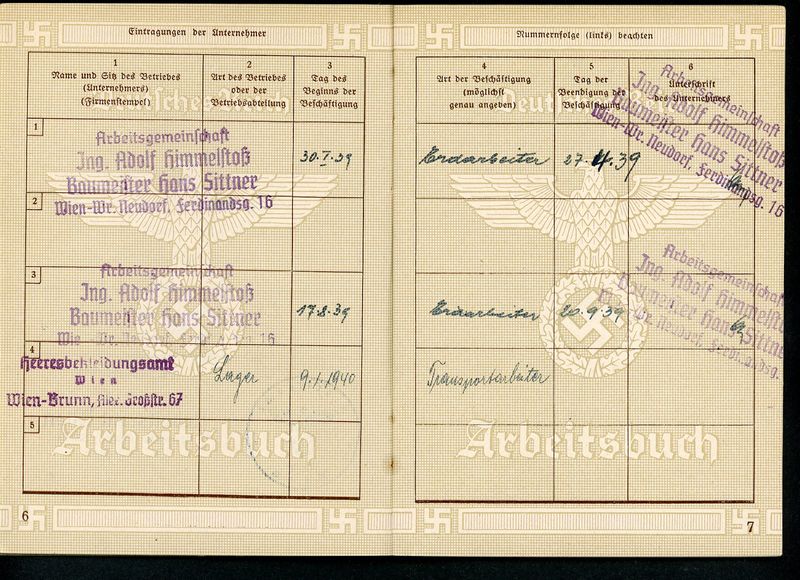 Eintragungen der Unternehmer
1
Name und Sitz des Betriebes
(Unternehmers)
(Firmenstempel)
2
Art des Betriebes
oder der
Betriebsabteilung
3
Tag des
Beginns der
Beschäftigung
Deutsches Reich
1
Arbeitsgemeinschaft
Ing. Adolf Himmelstoß
Baumeister Hans Sittner
Wien-Wr. Neudorf, Ferdinandsg. 16
30. 39
2
3
Arbeitsgemeinschaft
Ing. Adolf Himmelstoß
Baumeister Hans Sittner
17.8.39
4
Heeresbekleidungsamt
Wien
Wien-Brunn, Alex. Großstr. 67
Lager
9.1.1940
5
Arbeitsbuch
6
Nummernfolge (links) beachten
4
Art der Beschäftigung
(möglichst
genau angeben)
5
Tag der
Beendigung der
Beschäftigung
6
Unterschrift
des Unternehmers
Arbeitsgemeinschaft
Ing. Adolf Himmelstoß
Baumeister Hans Sittner
Wien-Wr. Neudorf, Ferdinandsg. 16
Erdarbeiter
27.4.39
Arbeitsgemeinschaft
Ing. Adolf Himmelstoß
Baumeister Hans Sittner
Wr. Neudorf, Ferdinandsg.
Erdarbeiter
20.9.39
Transportarbeiter
Arbeitsbuch
7